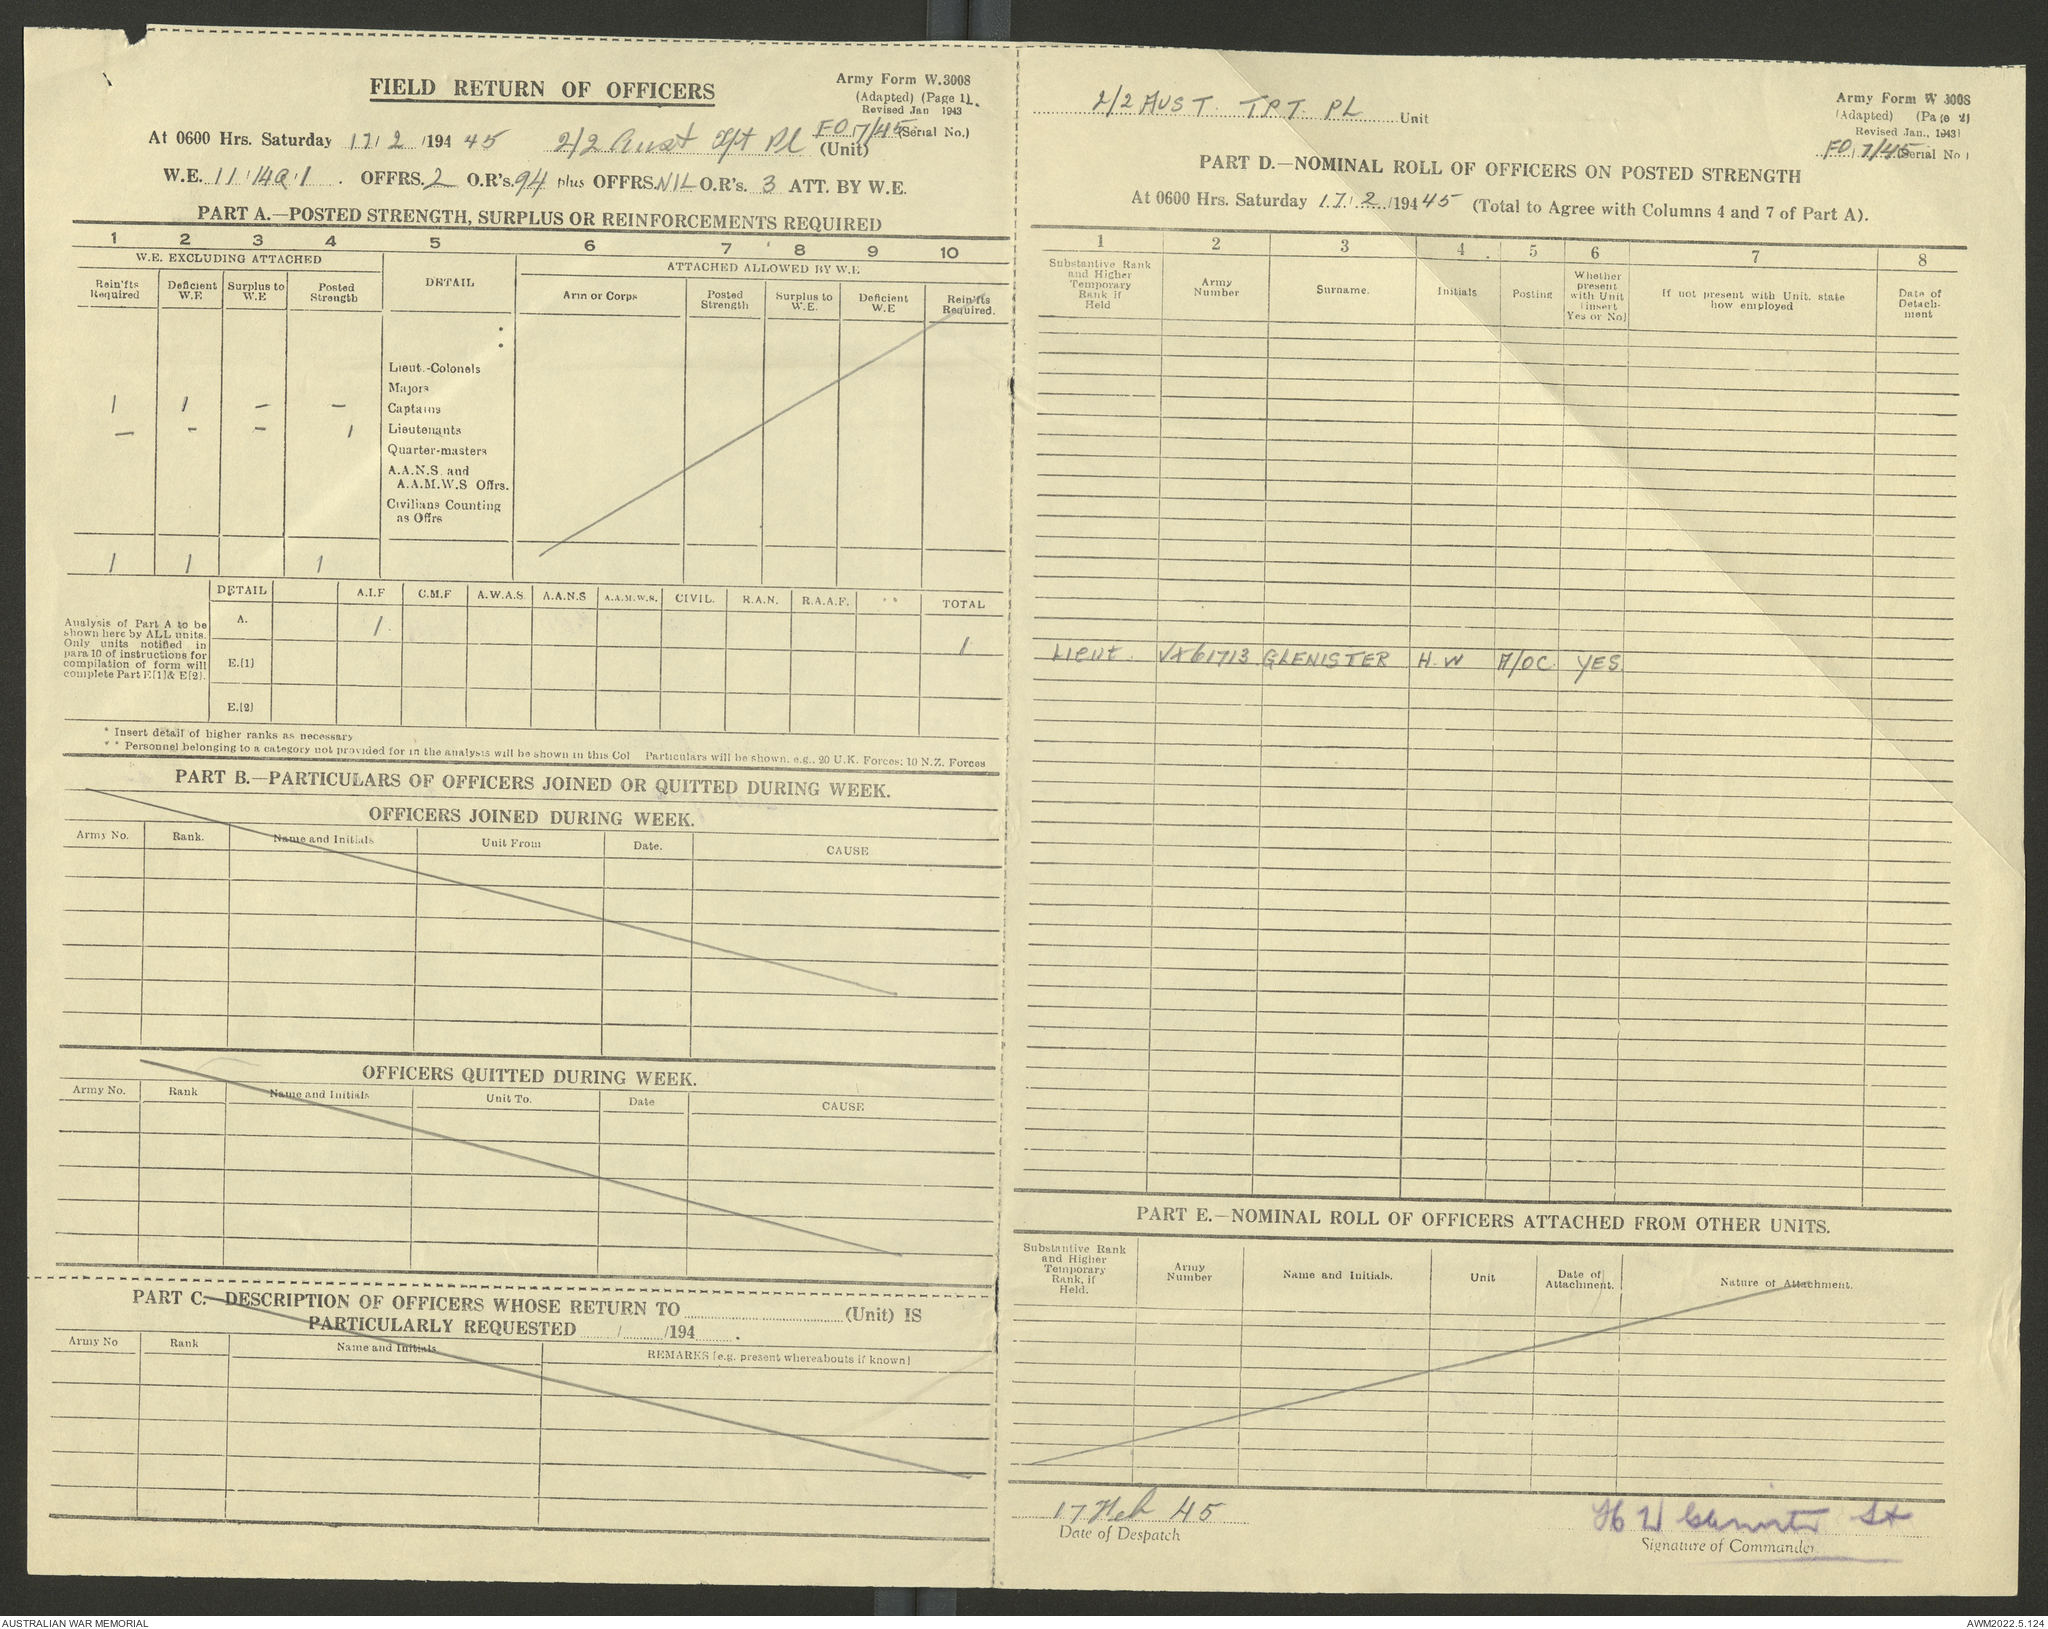 FIELD RETURN OF OFFICERS
Army Form W.3008
(Adapted) (Page 1).
Revised Jan 1943
At 0600 Hrs. Saturday 17/2/194 45 2/2 Aust Tpt Pl (Unit) FO 7/45 (Serial No.)
W.E. 11/149/1. OFFRS. 2 O.R's. 94 plus OFFRS. NIL O.R's. 3 ATT. BY W.E.
PART A.—POSTED STRENGTH, SURPLUS OR REINFORCEMENTS REQUIRED
1 2 3 4 5 6 7 8 9 10
W.E. EXCLUDING ATTACHED
DETAIL
ATTACHED ALLOWED BY W.E
Rein'fts Required
Deficient W.E
Surplus to W.E
Posted Strength
Arm or Corps
Posted Strength
Surplus to W.E.
Deficient W.E
Rein'fts Required.
Lieut.-Colonels
Majors
1 1 — — Captains
— — — 1 Lieutenants
Quarter-masters
A.A.N.S. and
A.A.M.W.S Offrs.
Civilians Counting
as Offrs
1 1 1
DETAIL A.I.F C.M.F A.W.A.S. A.A.N.S A.A.M.W.S. CIVIL. R.A.N. R.A.A.F. ** TOTAL
Analysis of Part A to be
shown here by ALL units.
Only units notified in
para 10 of instructions for
compilation of form will
complete Part E(1)& E(2).
A. 1 1
E.(1)
E.(2)
* Insert detail of higher ranks as necessary
** Personnel belonging to a category not provided for in the analysis will be shown in this Col Particulars will be shown, e.g., 20 U.K. Forces; 10 N.Z. Forces
PART B.—PARTICULARS OF OFFICERS JOINED OR QUITTED DURING WEEK.
OFFICERS JOINED DURING WEEK.
Army No. Rank. Name and Initials Unit From Date. CAUSE
OFFICERS QUITTED DURING WEEK.
Army No. Rank Name and Initials Unit To. Date CAUSE
PART C.—DESCRIPTION OF OFFICERS WHOSE RETURN TO (Unit) IS
PARTICULARLY REQUESTED / /194 .
Army No Rank Name and Initials REMARKS (e.g. present whereabouts if known)
2/2 AUST. TPT. PL Unit
Army Form W 3008
(Adapted) (Page 2)
Revised Jan., 1943)
FO 7/45 (Serial No)
PART D.—NOMINAL ROLL OF OFFICERS ON POSTED STRENGTH
At 0600 Hrs. Saturday 17/2/194 45 (Total to Agree with Columns 4 and 7 of Part A).
1 2 3 4 5 6 7 8
Substantive Rank
and Higher
Temporary
Rank if
Held
Army
Number
Surname.
Initials
Posting
Whether
present
with Unit
(insert
Yes or No)
If not present with Unit, state
how employed
Date of
Detach-
ment
LIEUT. VX61713 GLENISTER H.W A/OC YES
PART E.—NOMINAL ROLL OF OFFICERS ATTACHED FROM OTHER UNITS.
Substantive Rank
and Higher
Temporary
Rank, if
Held.
Army
Number
Name and Initials.
Unit
Date of
Attachment.
Nature of Attachment.
17 Feb 45
Date of Despatch
H W Glenister Lt
Signature of Commander
AUSTRALIAN WAR MEMORIAL
AWM2022.5.124